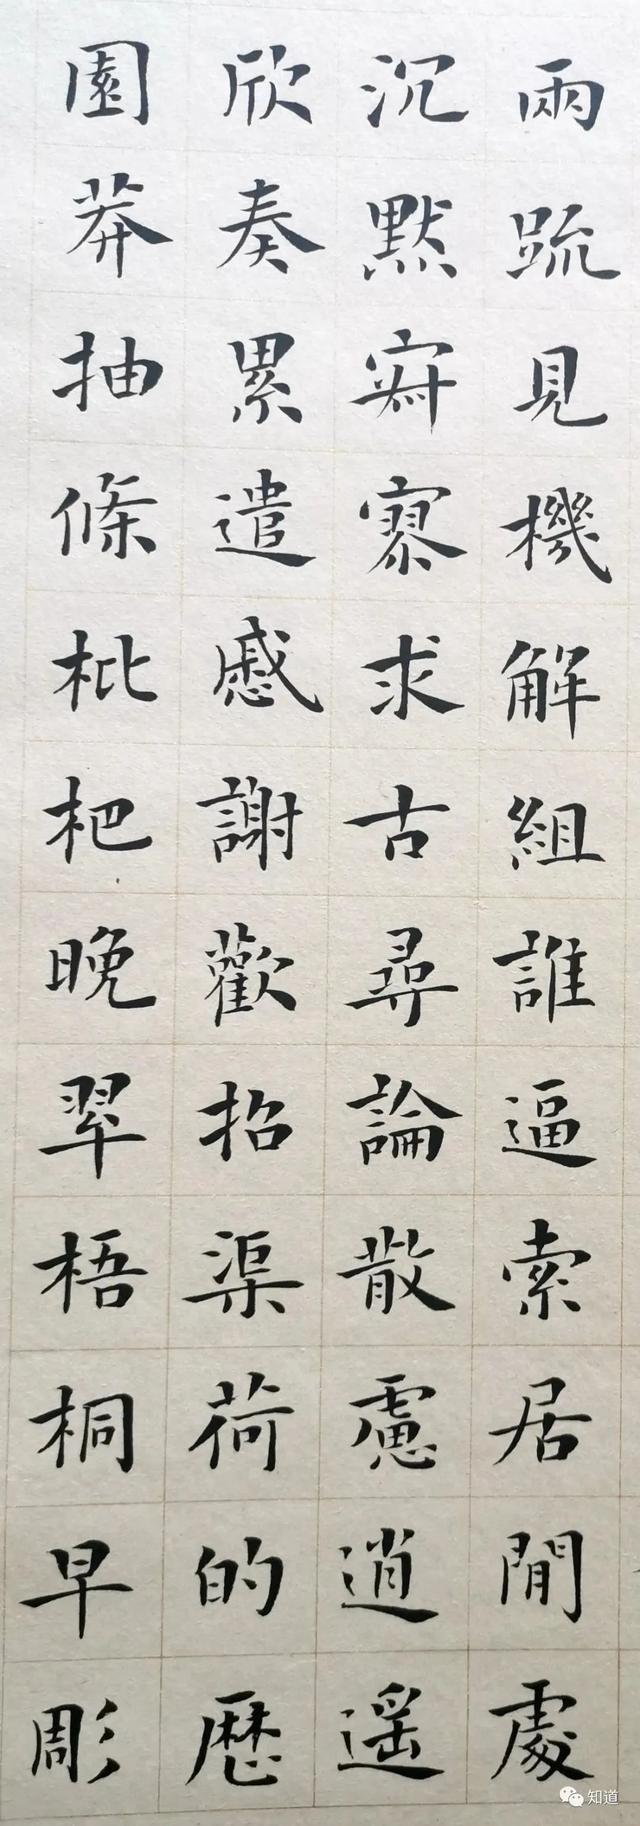 兩疏見機解組誰逼索居閒處
沉默寂寥求古尋論散慮逍遙
欣奏累遣慼謝歡招渠荷的歷
園莽抽條枇杷晚翠梧桐早彫
知道